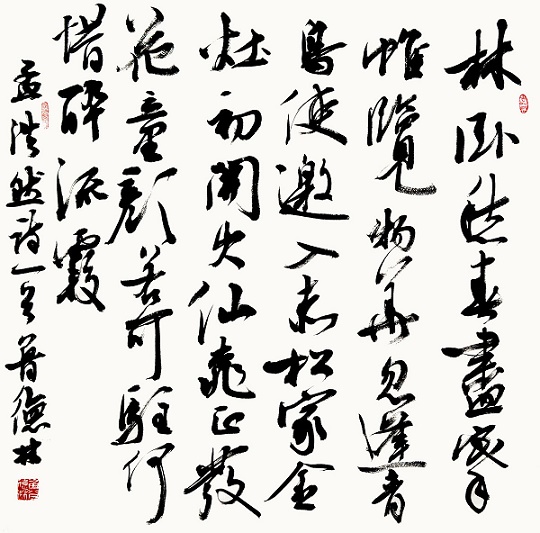 林卧愁春盡搴
帷覽物華忽逢青
鳥使邀入赤松家金
灶初開火仙桃正發
花童顏若可駐何
惜醉流霞
孟浩然詩一首德林